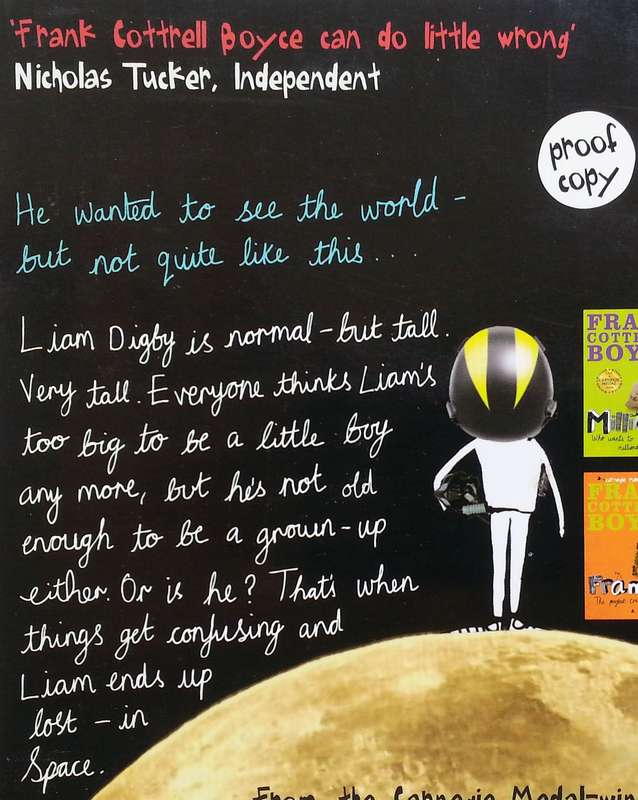 'Frank Cottrell Boyce can do little wrong'
Nicholas Tucker, Independent
proof
copy
He wanted to see the world -
but not quite like this...
Liam Digby is normal - but tall.
Very tall. Everyone thinks Liam's
too big to be a little boy
any more, but he's not old
enough to be a grown-up
either. Or is he? That's when
things get confusing and
Liam ends up
lost - in
Space.
FRA
COTT
BOY
Milli
Who wants to
FRA
COTT
BOY
Fram
From the Carnegie Medal-win